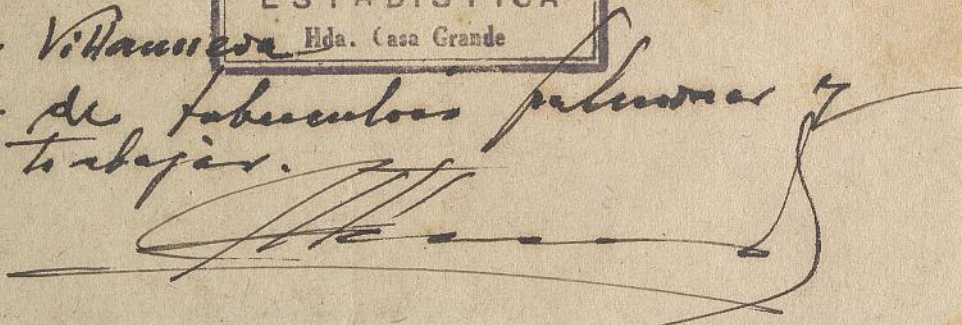 ESTADISTICA
Hda. Casa Grande
Villanueva
de tuberculosis pulmonar y
trabajar.